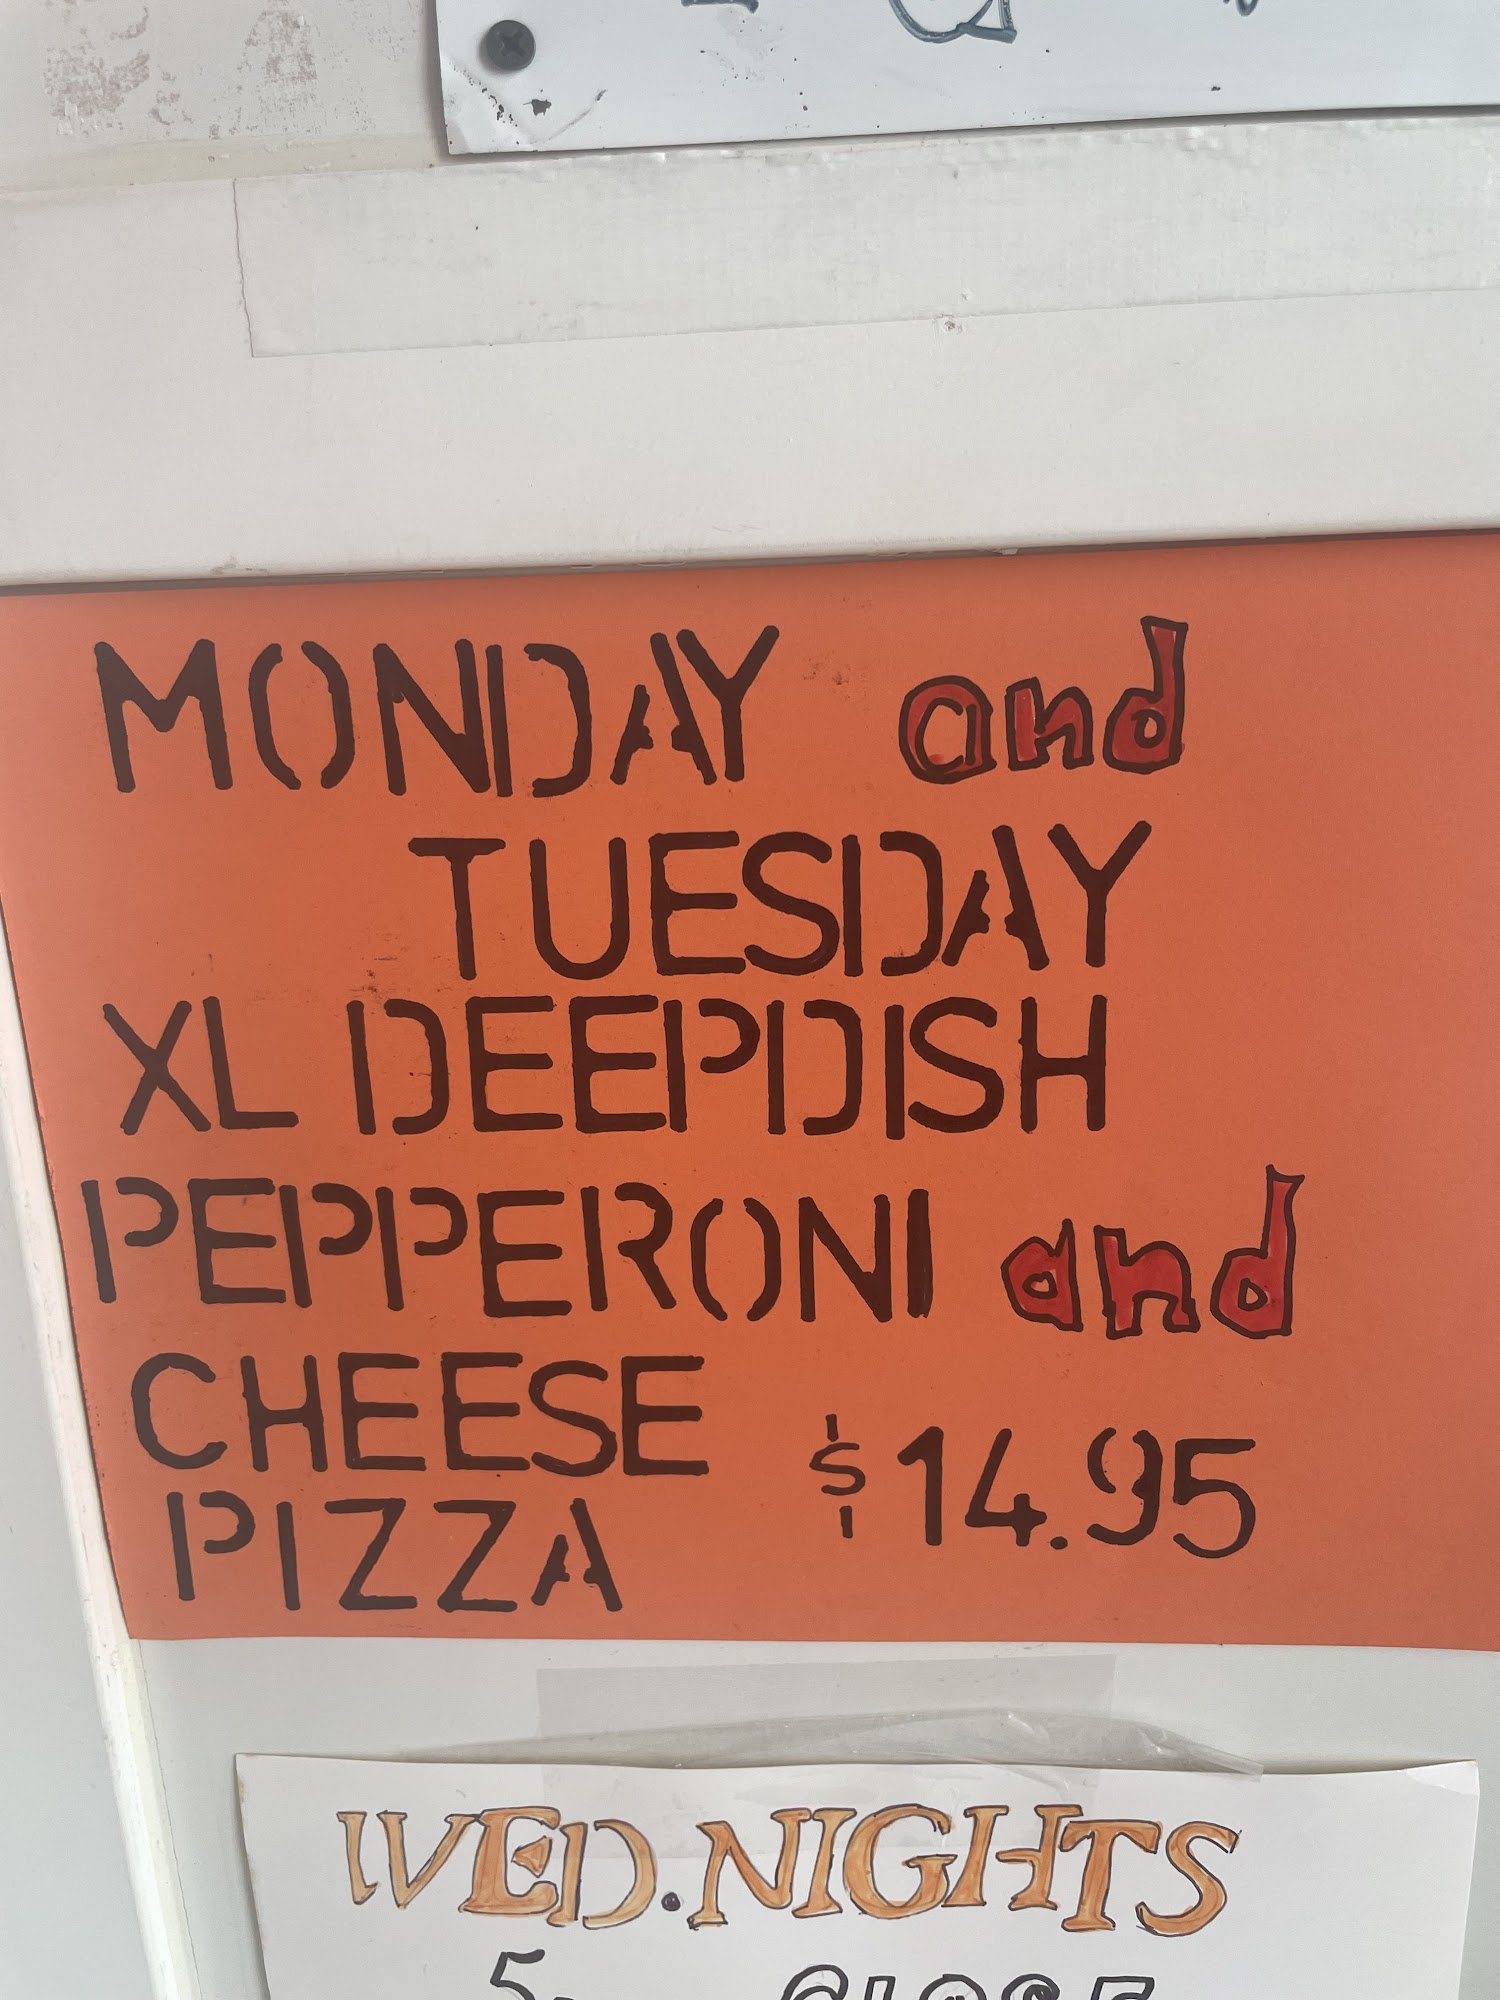 MONDAY and
TUESDAY
XL DEEPDISH
PEPPERONI and
CHEESE
PIZZA $14.95
WED. NIGHTS